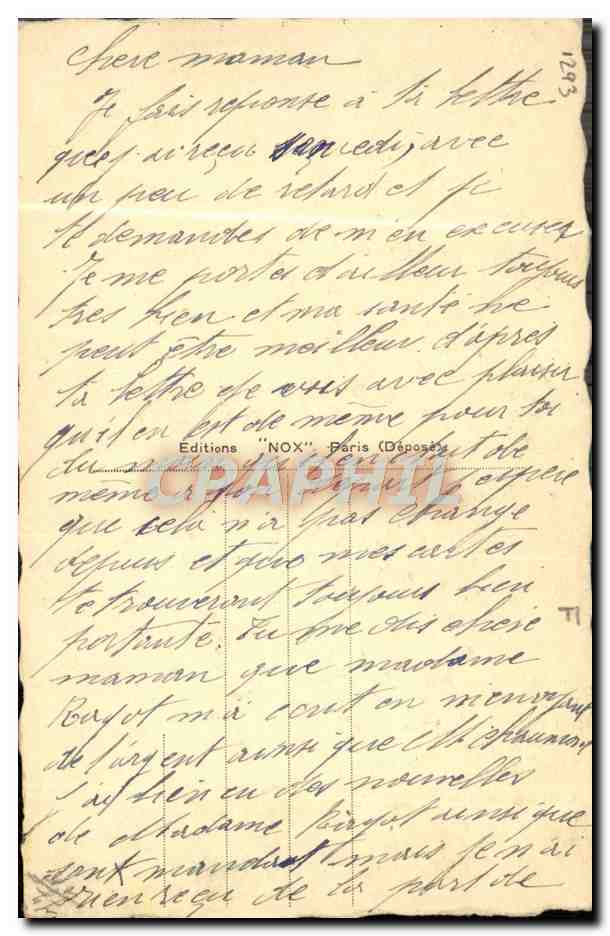 chere maman
Je fais reponse à ta lettre
que j ai reçu samedi, avec
un peu de retard et je
te demandes de m'en excuser
Je me portes d'ailleur toujours
tres bien et ma santé ne
peut être meilleur d'apres
ta lettre je vois avec plaisir
qu'il en est de même pour toi
Editions "NOX" Paris (Déposé)
du moins
même j'espere
que cela n'a pas change
depuis et que mes cartes
te trouveront toujours bien
portante. Tu me dis chere
maman que madame
Rayot m'a ecrit en m'envoyant
de l'argent ainsi que Mr Chaumont
j'ai bien eu des nouvelles
de Madame Rayot ainsi que
son mandat mais je n'ai
rien reçu de la part de
1293
F
CPAPHIL